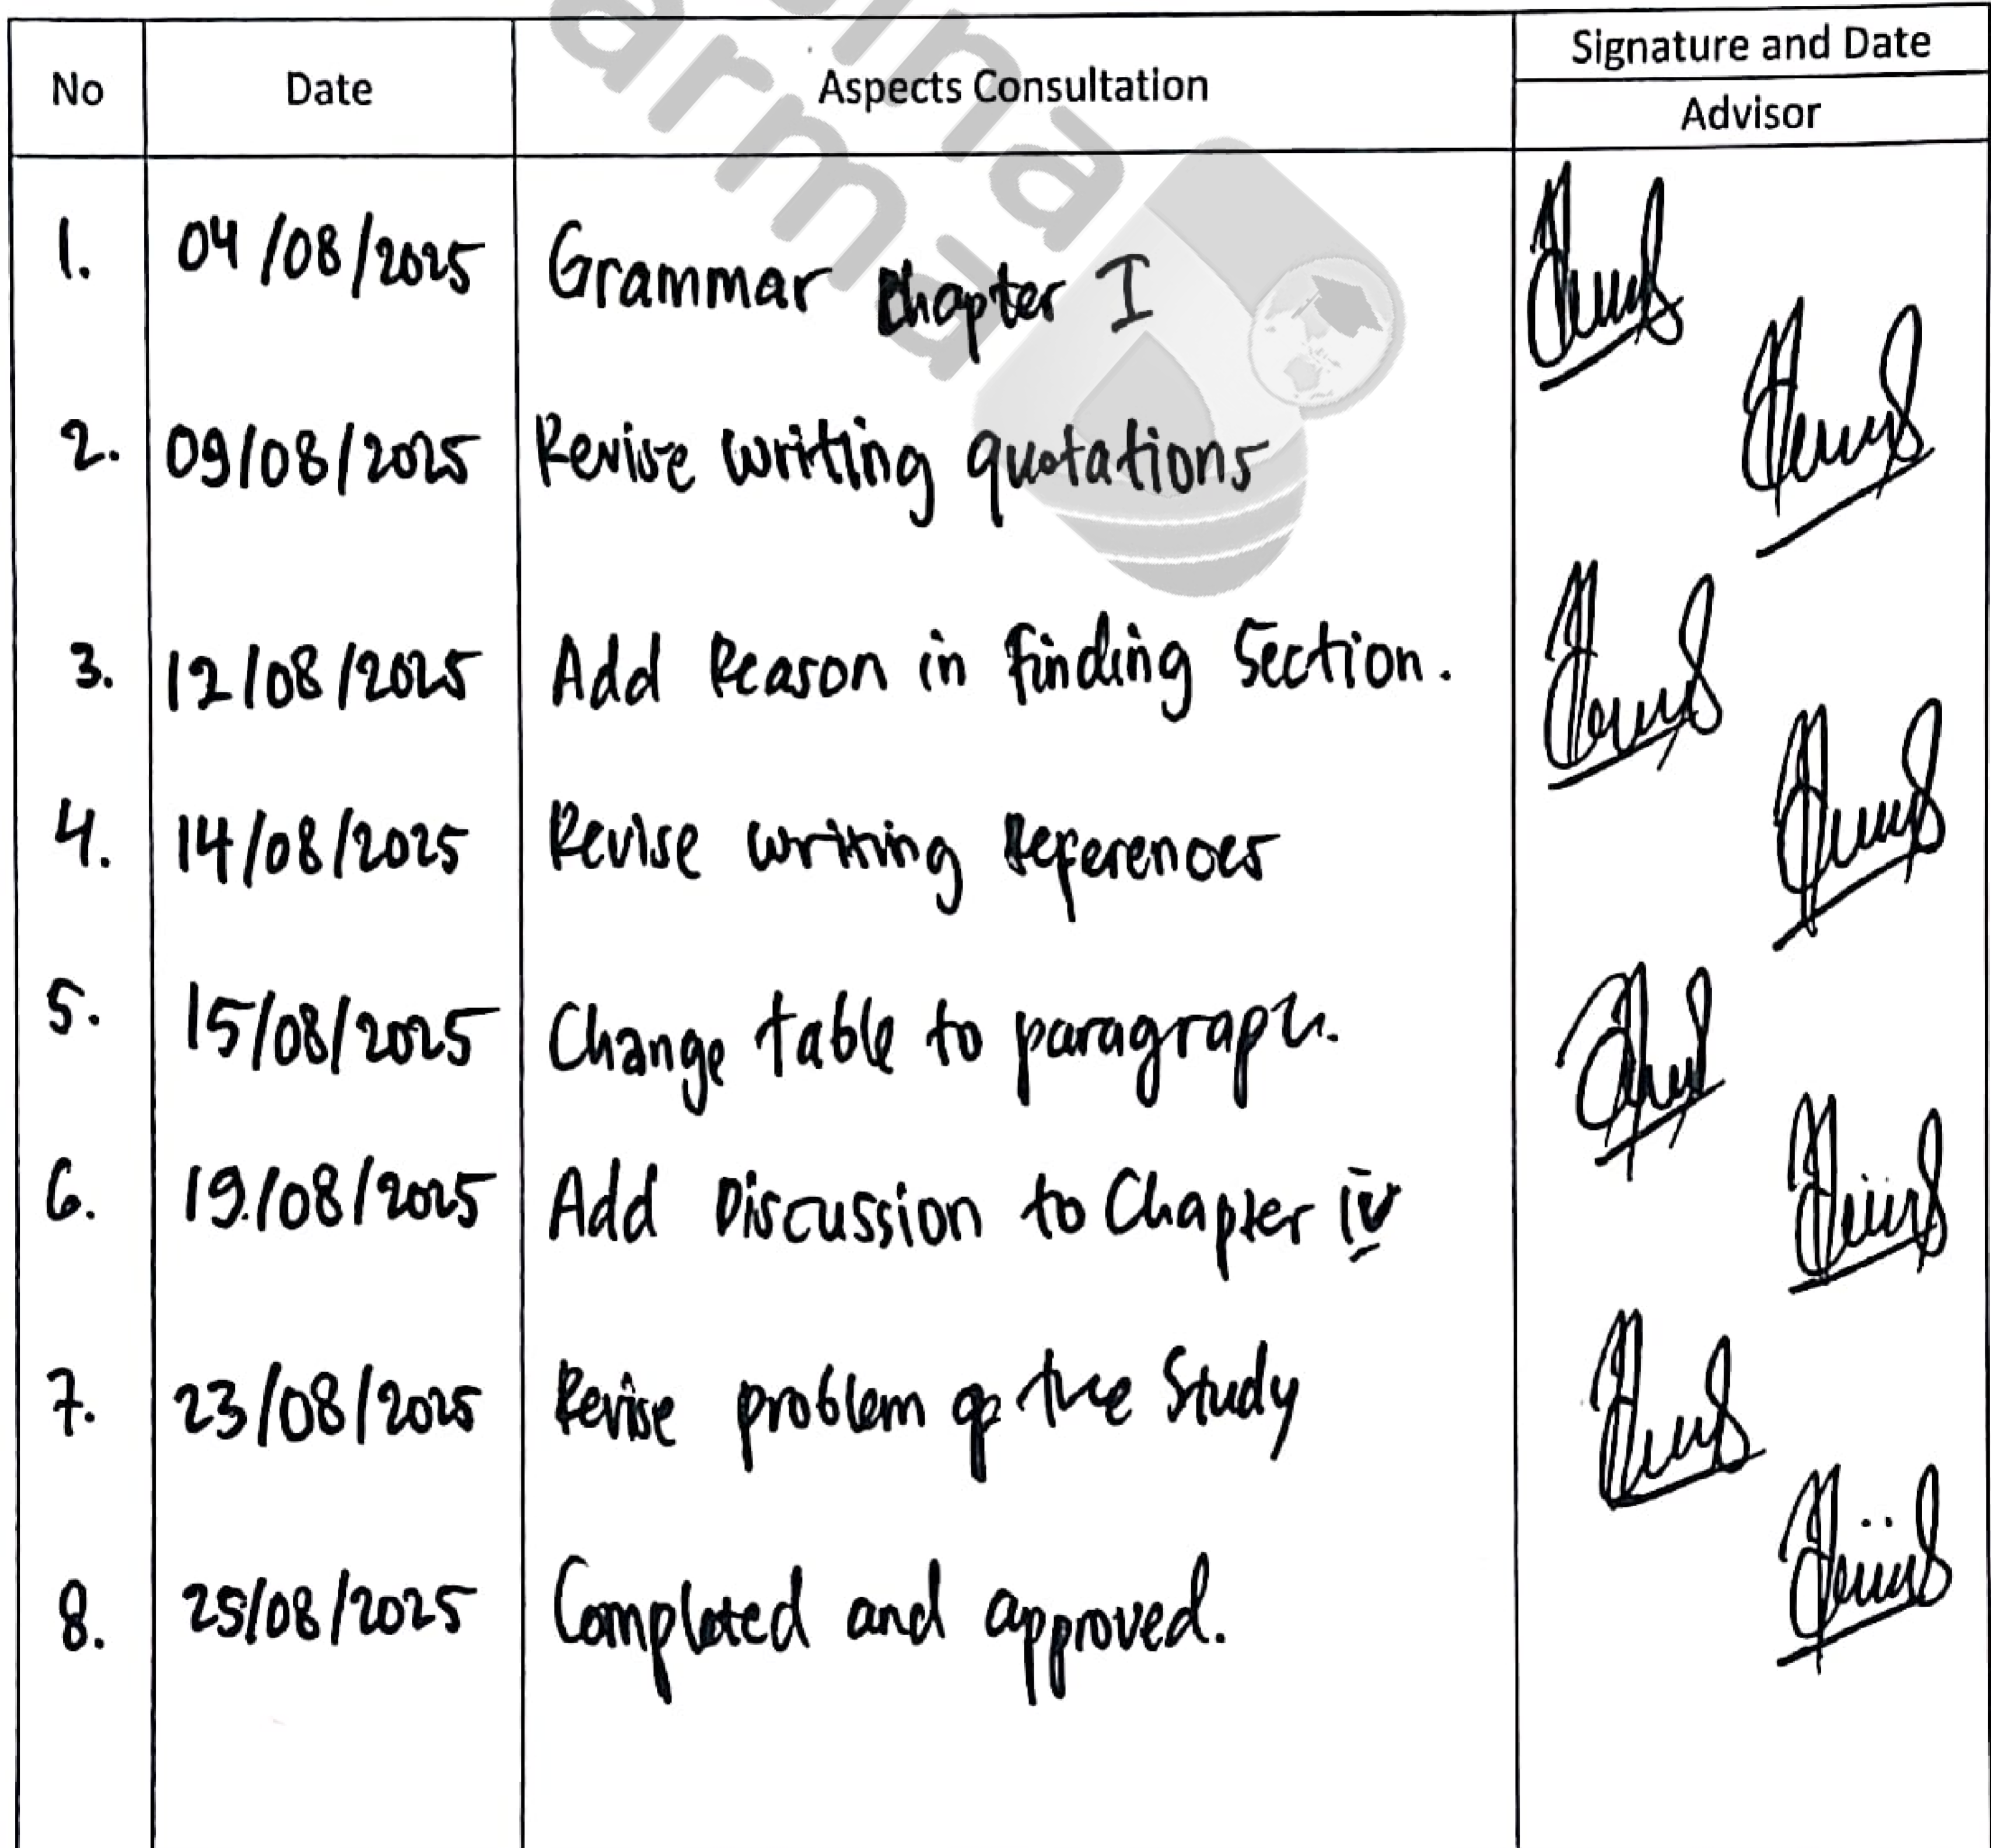 No Date Aspects Consultation Signature and Date
Advisor
1. 04/08/2025 Grammar Chapter I
2. 09/08/2025 Revise writing quotations
3. 12/08/2025 Add Reason in Finding Section.
4. 14/08/2025 Revise writing References
5. 15/08/2025 Change table to paragraph.
6. 19/08/2025 Add Discussion to Chapter IV
7. 23/08/2025 Revise problem of the Study
8. 25/08/2025 Completed and approved.